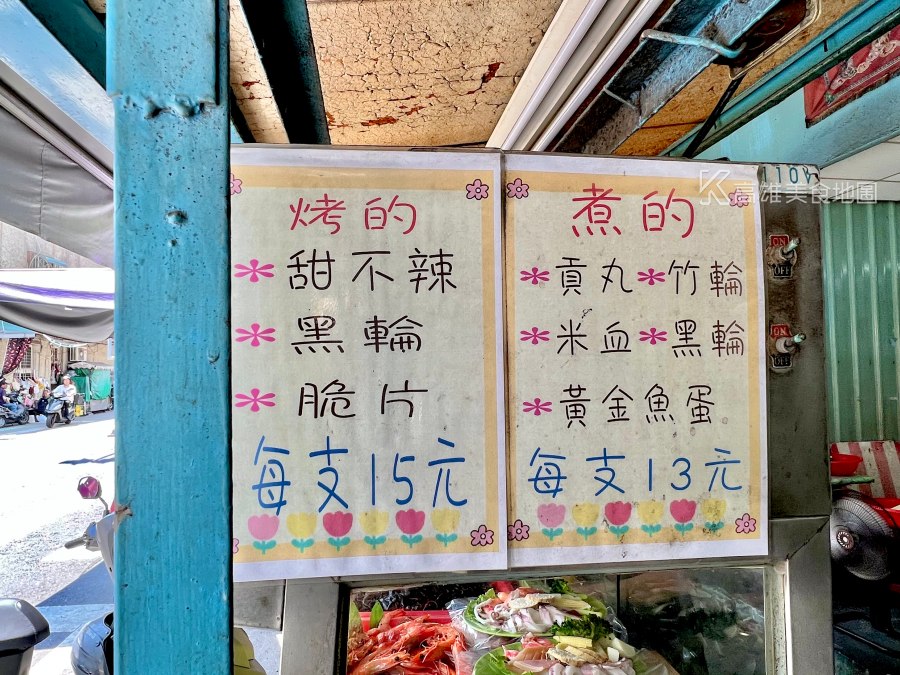 烤的
甜不辣
黑輪
脆片
每支15元
煮的
貢丸 竹輪
米血 黑輪
黃金魚蛋
每支13元
高雄美食地圖
110V
ON
OFF
ON
OFF